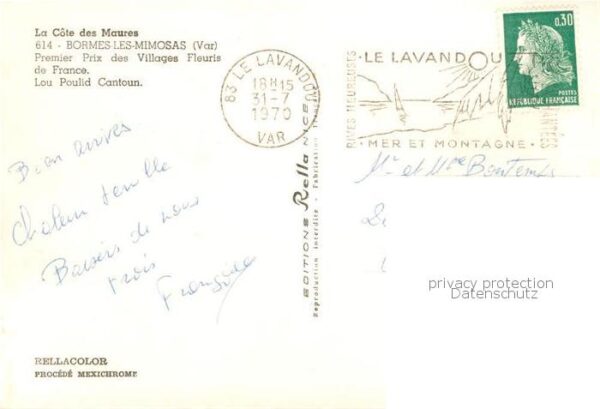 La Côte des Maures
614 - BORMES-LES-MIMOSAS (Var)
Premier Prix des Villages Fleuris
de France.
Lou Poulid Cantoun.
83 LE LAVANDOU
18H15
31-7
1970
VAR
RIVES HEUREUSES
LE LAVANDOU
MER ET MONTAGNE
0,30
POSTES
REPUBLIQUE FRANÇAISE
Bien arrivés
Chaleur terrible
Baisers de nous
trois
Françoise
EDITIONS Rella NICE
Reproduction interdite - Fabrication
Mr et Mme Bontemps
privacy protection
Datenschutz
RELLACOLOR
PROCÉDÉ MEXICHROME